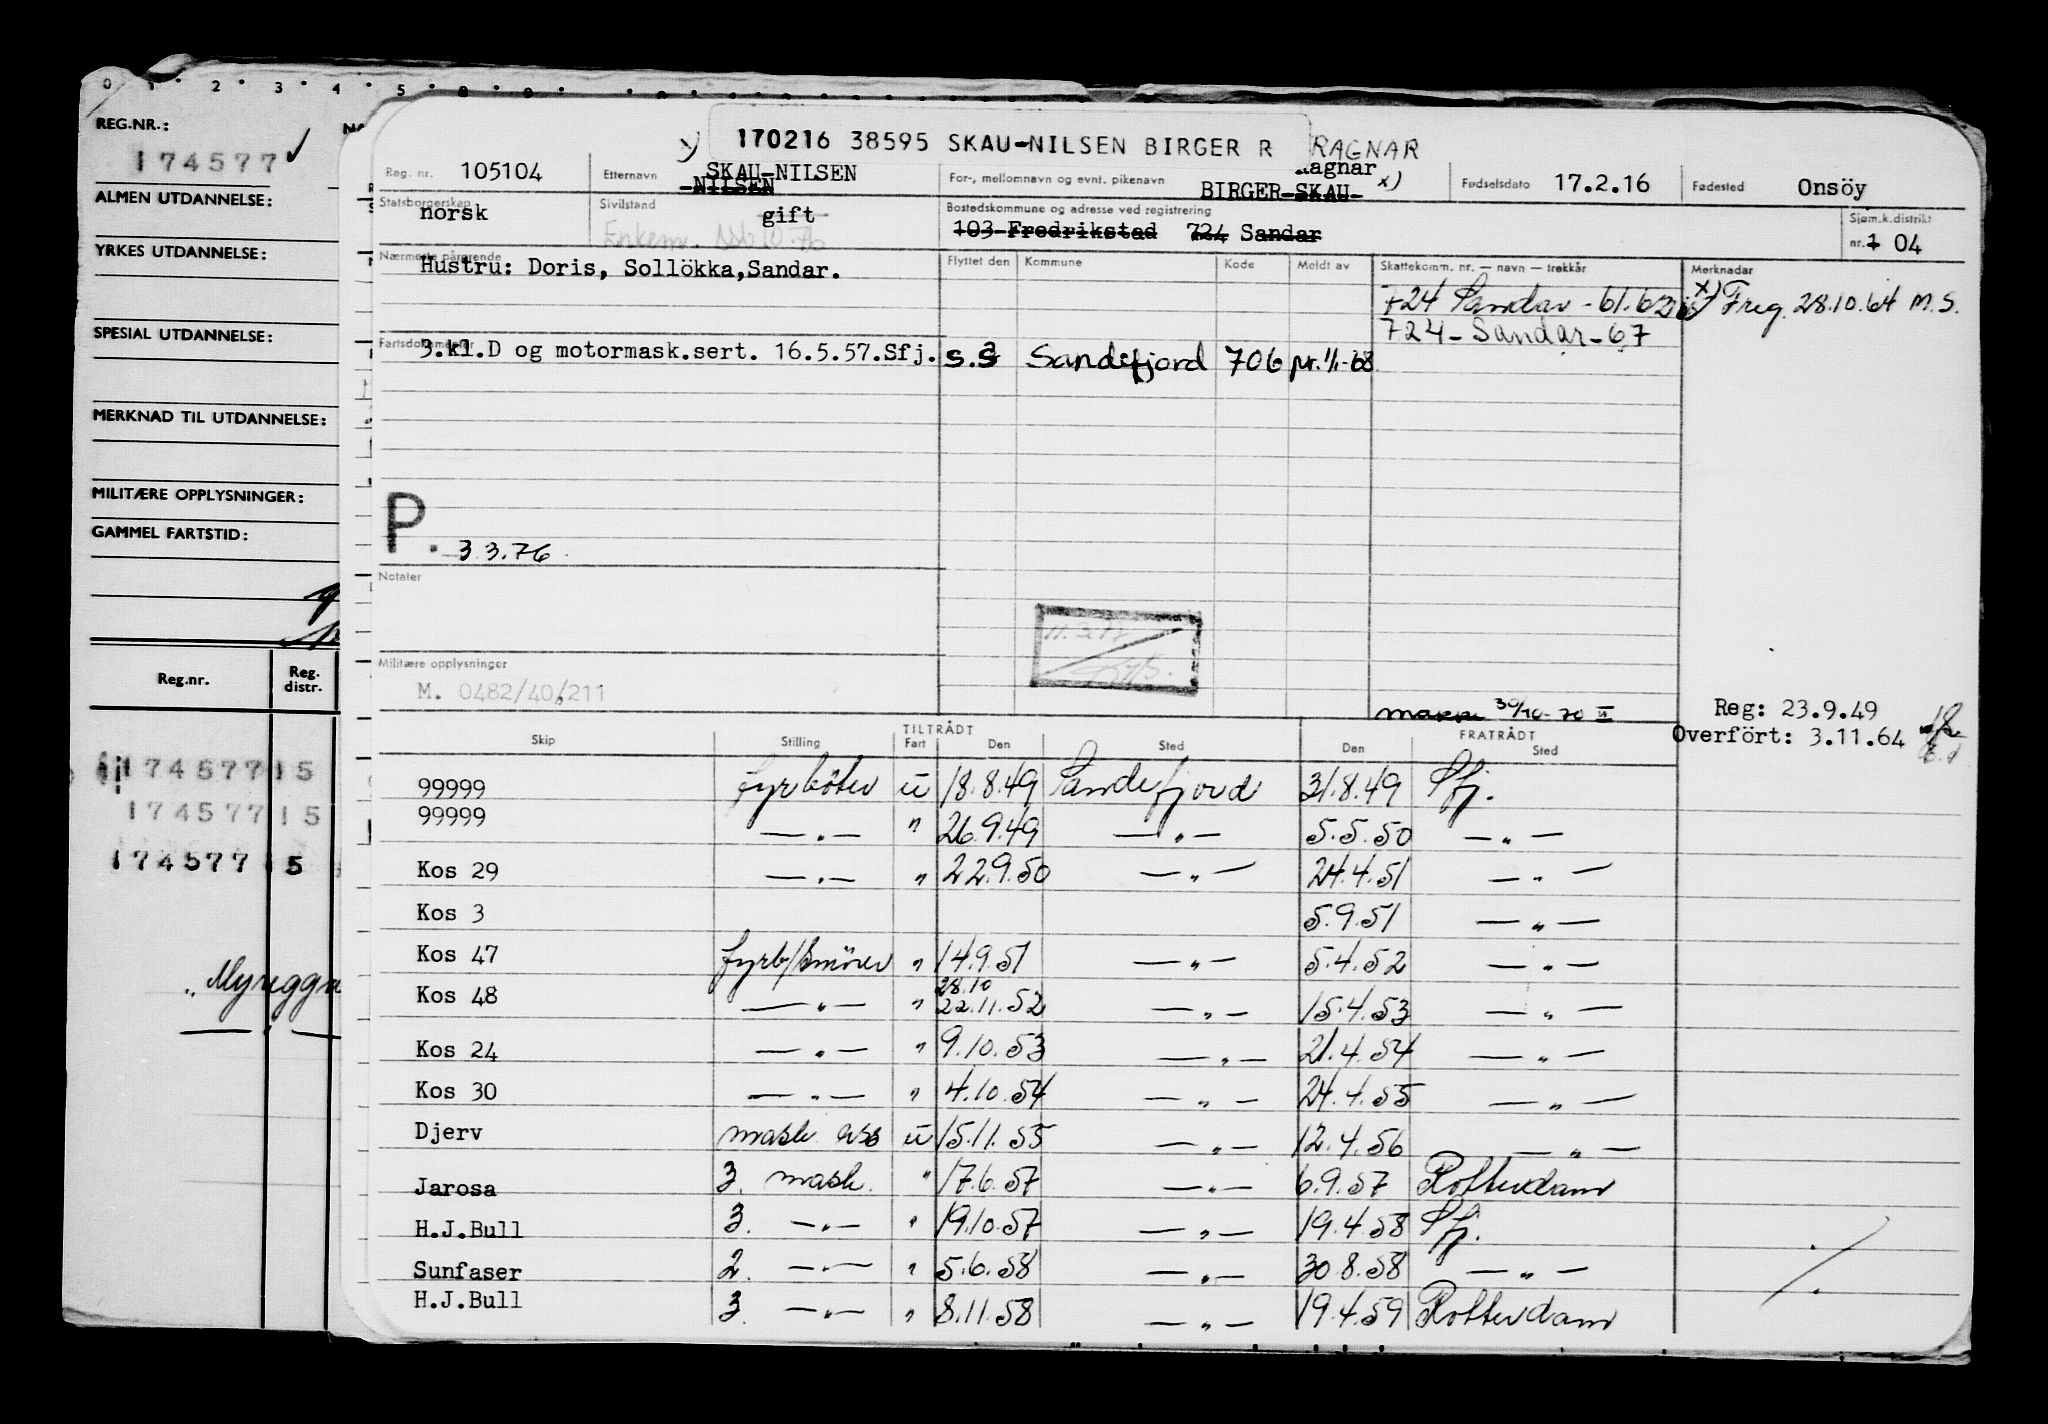 0 1 2 3 4 5
REG.NR.:
174577 ✓
ALMEN UTDANNELSE:
YRKES UTDANNELSE:
SPESIAL UTDANNELSE:
MERKNAD TIL UTDANNELSE:
MILITÆRE OPPLYSNINGER:
GAMMEL FARTSTID:
Reg.nr. Reg. distr.
174577 15
174577 15
174577 15
x) 170216 38595 SKAU-NILSEN BIRGER R RAGNAR
Reg. nr. 105104 Etternavn SKAU-NILSEN For-, mellomnavn og evnt. pikenavn Ragnar x) Fødselsdato 17.2.16 Fødested Onsöy
-NILSEN BIRGER-SKAU-
Statsborgerskap norsk Sivilstand gift Bostedskommune og adresse ved registrering Sjøm.k.distrikt
Enkem. 10.76 103 Fredrikstad 724 Sandar nr. 1 04
Nærmeste pårørende Flyttet den Kommune Kode Meldt av Skattekomm. nr. — navn — trekkår Merknadar
Hustru: Doris, Sollökka,Sandar.
724 Sandar - 61.62 x) Freg. 28.10.64 M.S.
724-Sandar-67
Fartsdokumenter
3.kl.D og motormask.sert. 16.5.57.Sfj. s.å Sandefjord 706 pr. 1/1-68
P. 3.3.76
Notater
Militære opplysninger
M. 0482/40/211
30/10-70
Reg: 23.9.49
Overfört: 3.11.64
TILTRÅDT FRATRÅDT
Skip Stilling Fart Den Sted Den Sted
99999 fyrböter u 18.8.49 Sandefjord 31.8.49 Sfj.
99999 —"— " 26.9.49 —"— 5.5.50 —"—
Kos 29 —"— " 22.9.50 —"— 24.4.51 —"—
Kos 3 5.9.51 —"—
Kos 47 fyrb/smörer " 14.9.51 —"— 5.4.52 —"—
28.10
Kos 48 —"— " 22.11.52 —"— 15.4.53 —"—
Kos 24 —"— " 9.10.53 —"— 21.4.54 —"—
Kos 30 —"— " 4.10.54 —"— 24.4.55 —"—
Djerv mask ass u 15.11.55 —"— 12.4.56 —"—
Jarosa 3. mask. " 17.6.57 —"— 6.9.57 Rotterdam
H.J.Bull 3. —"— " 19.10.57 —"— 19.4.58 Sfj.
Sunfaser 2. —"— " 5.6.58 —"— 30.8.58 —"—
H.J.Bull 3. —"— " 8.11.58 —"— 19.4.59 Rotterdam
./.